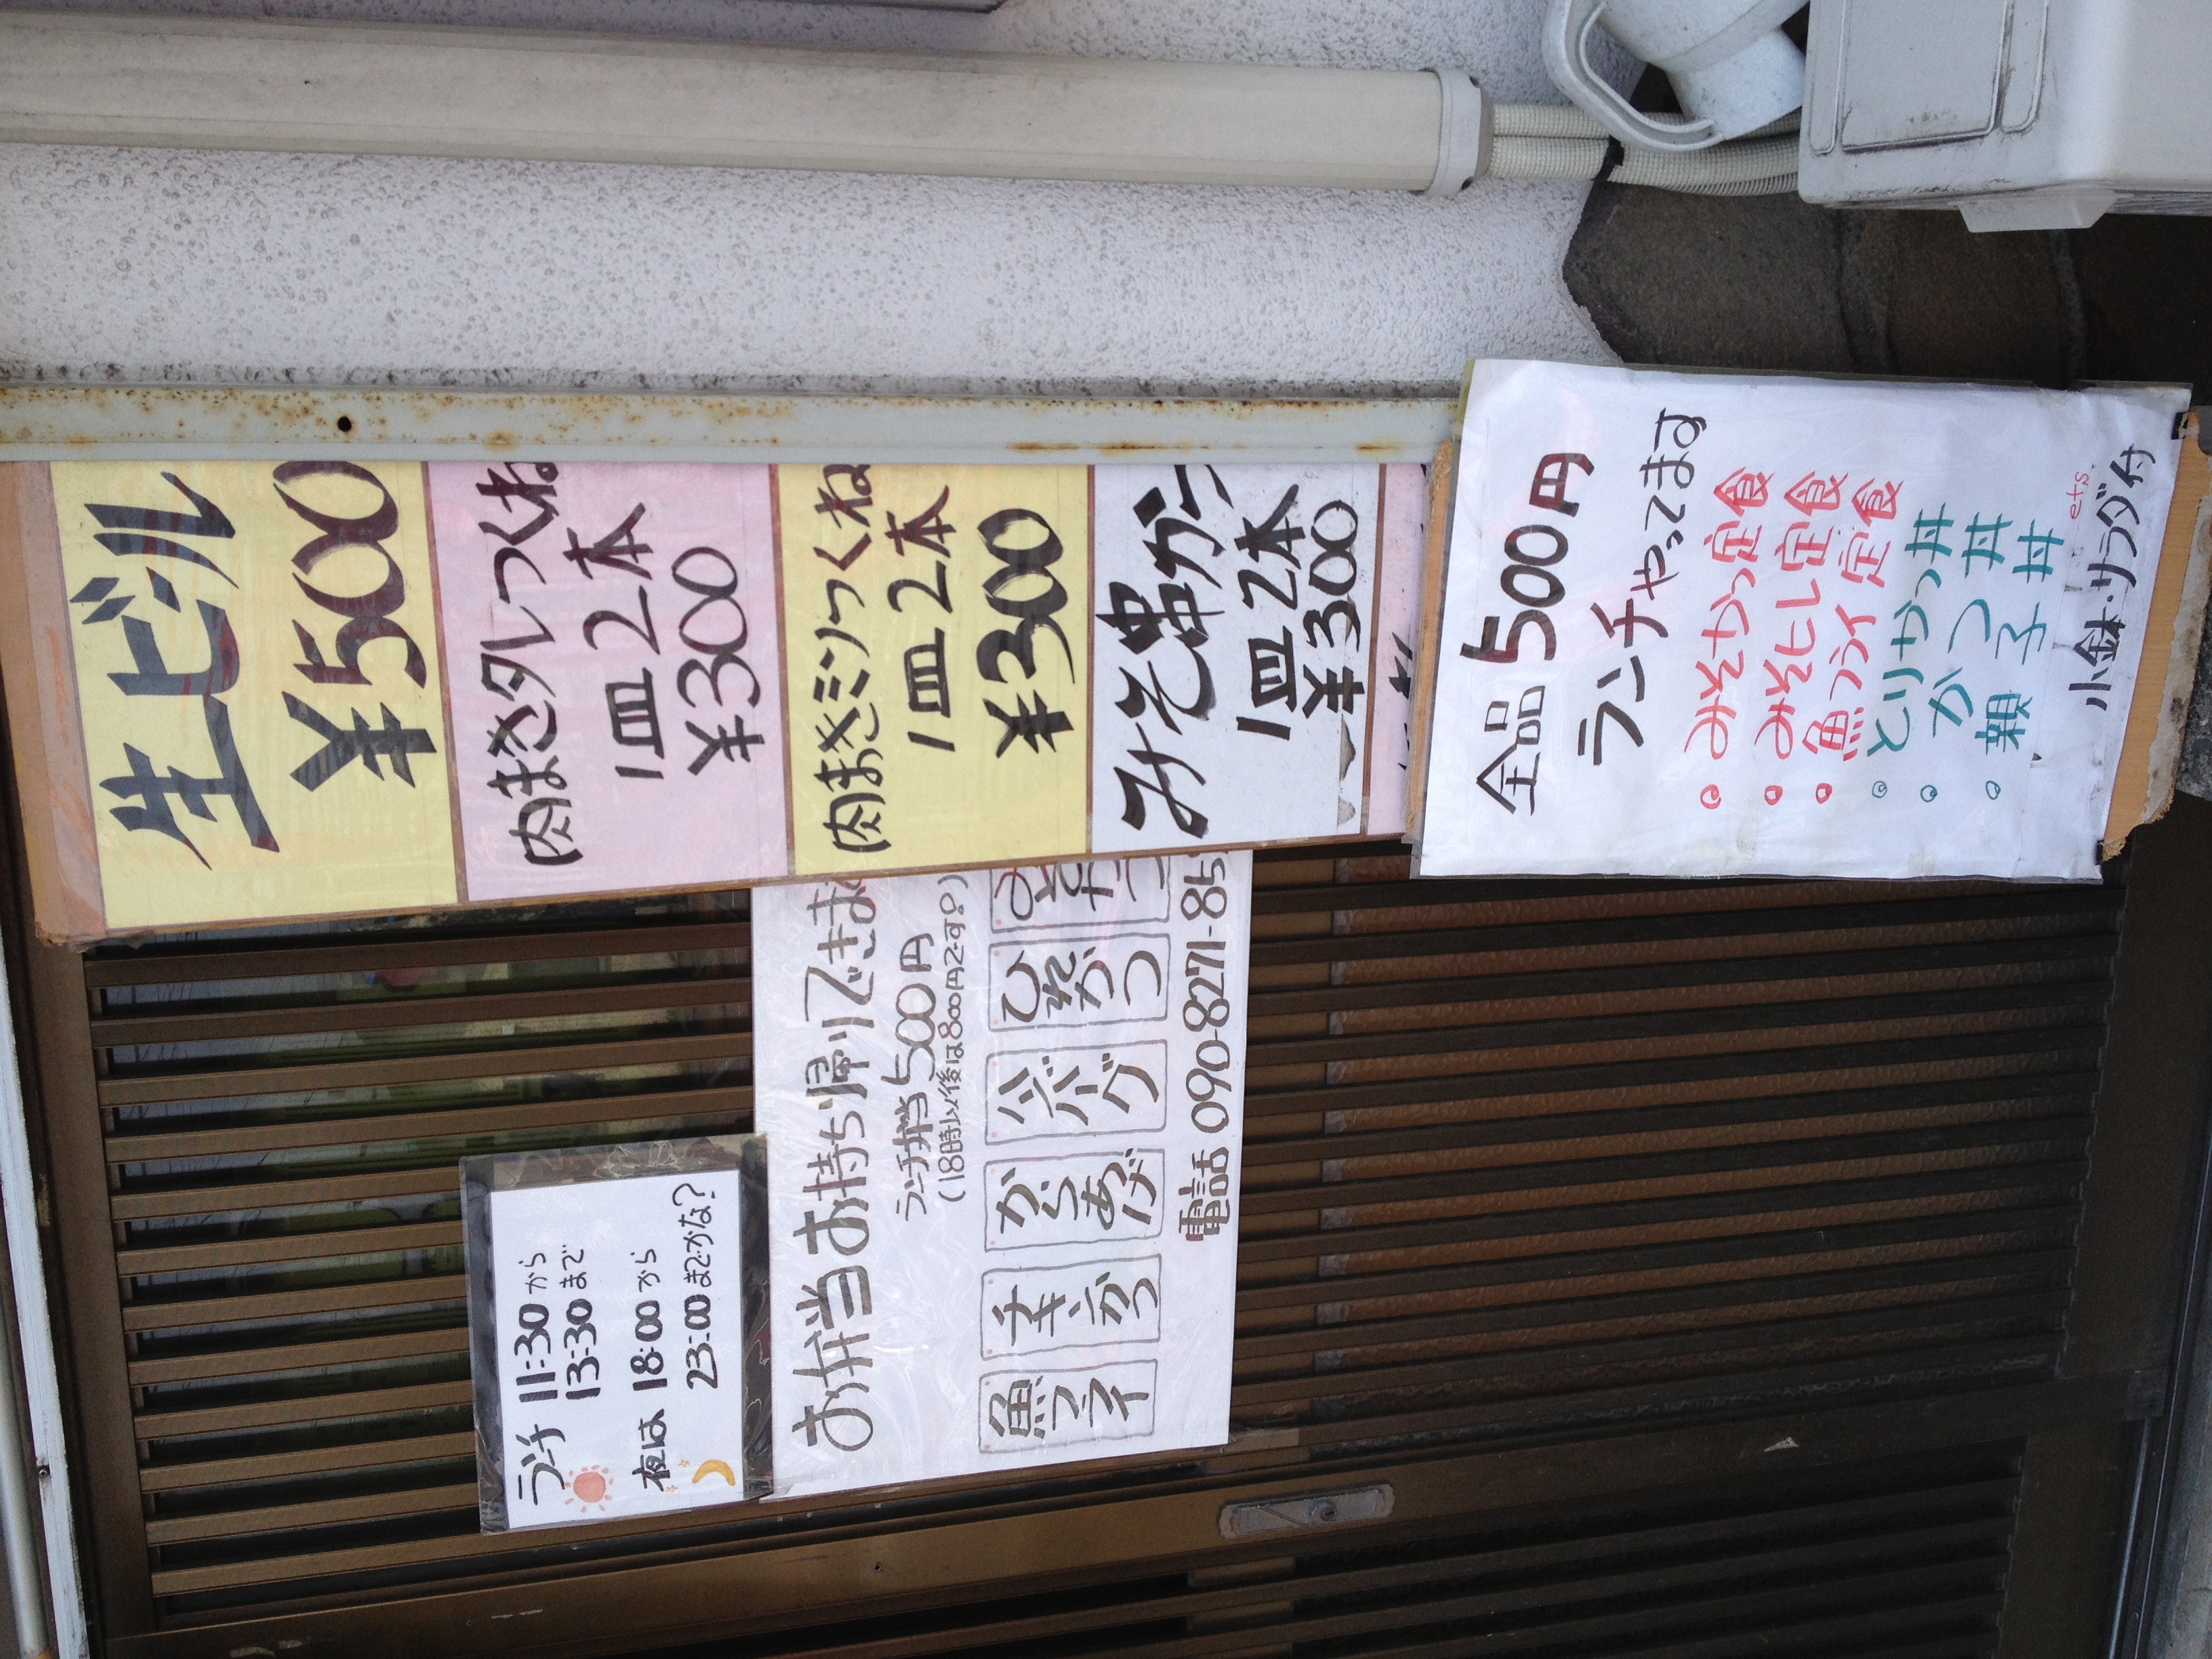 生ビール
¥500
肉まきタレつくね
1皿2本
¥300
肉まきミソつくね
1皿2本
¥300
みそ串かつ
1皿2本
¥300
全品500円
ランチやってます
みそかつ定食
みそヒレ定食
魚フライ定食
とりかつ丼
かつ丼
親子丼
etc
小鉢・サラダ付
ランチ 11:30から
13:30まで
夜は 18:00から
23:00までかな?
お弁当お持ち帰りできま
ランチ弁当500円
(18時以後は800円です。)
魚フライ
チキンかつ
からあげ
ハンバーグ
ひれかつ
みそかつ
電話 090-8271-85